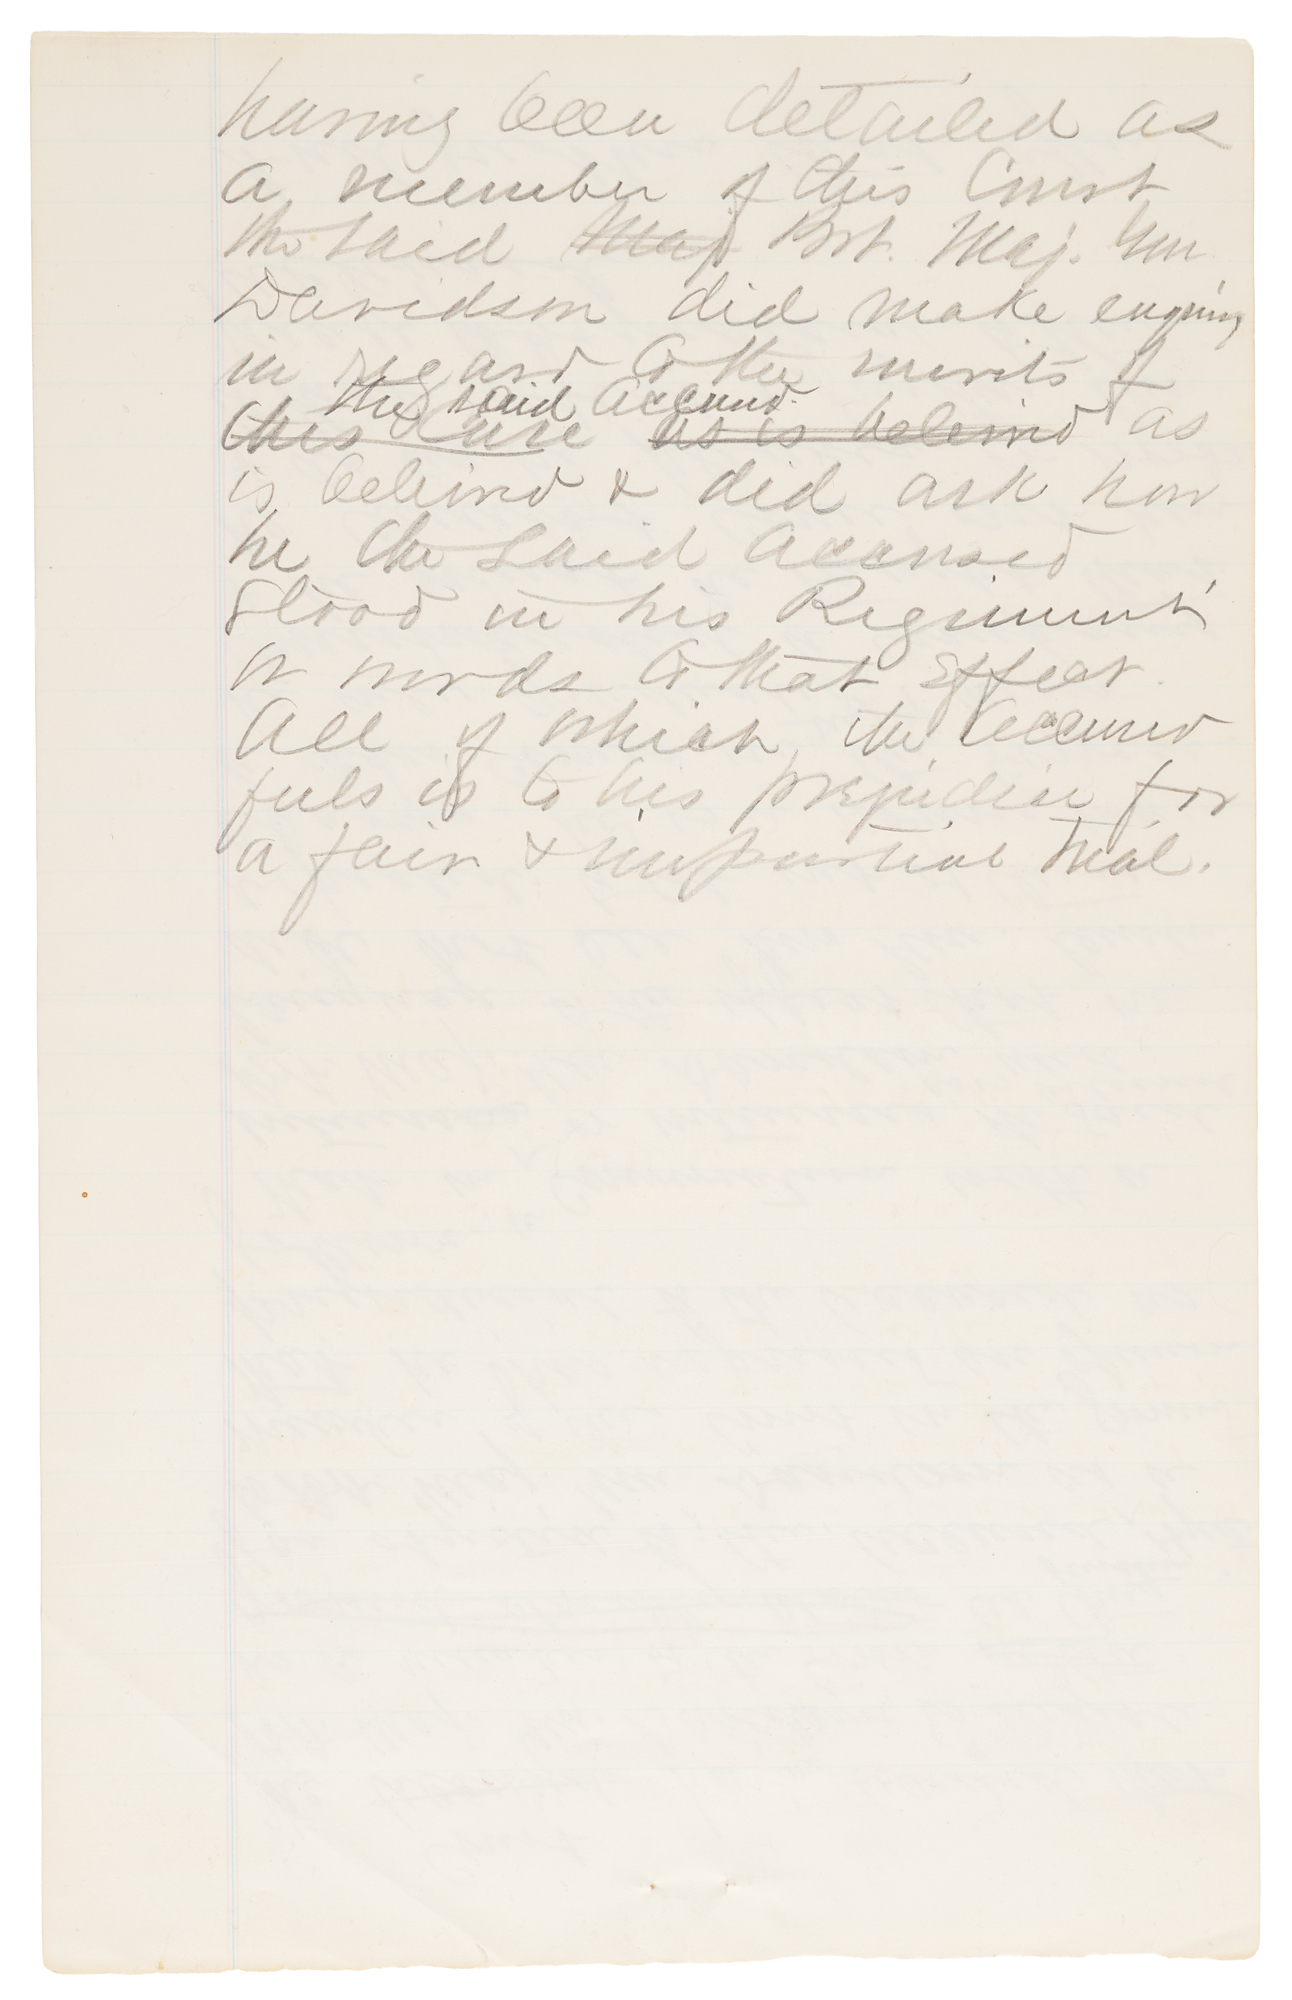 having been detailed as
a member of this Court
the said Maj Bvt. Maj. Gen
Davidson did make enquiry
in regard to the merits of
the said accused.
this case as is beleived as
is beleived & did ask how
he the said accused
stood in his Regiment
or words to that effect.
All of which, the accused
feels is to his prejudice for
a fair & impartial trial.